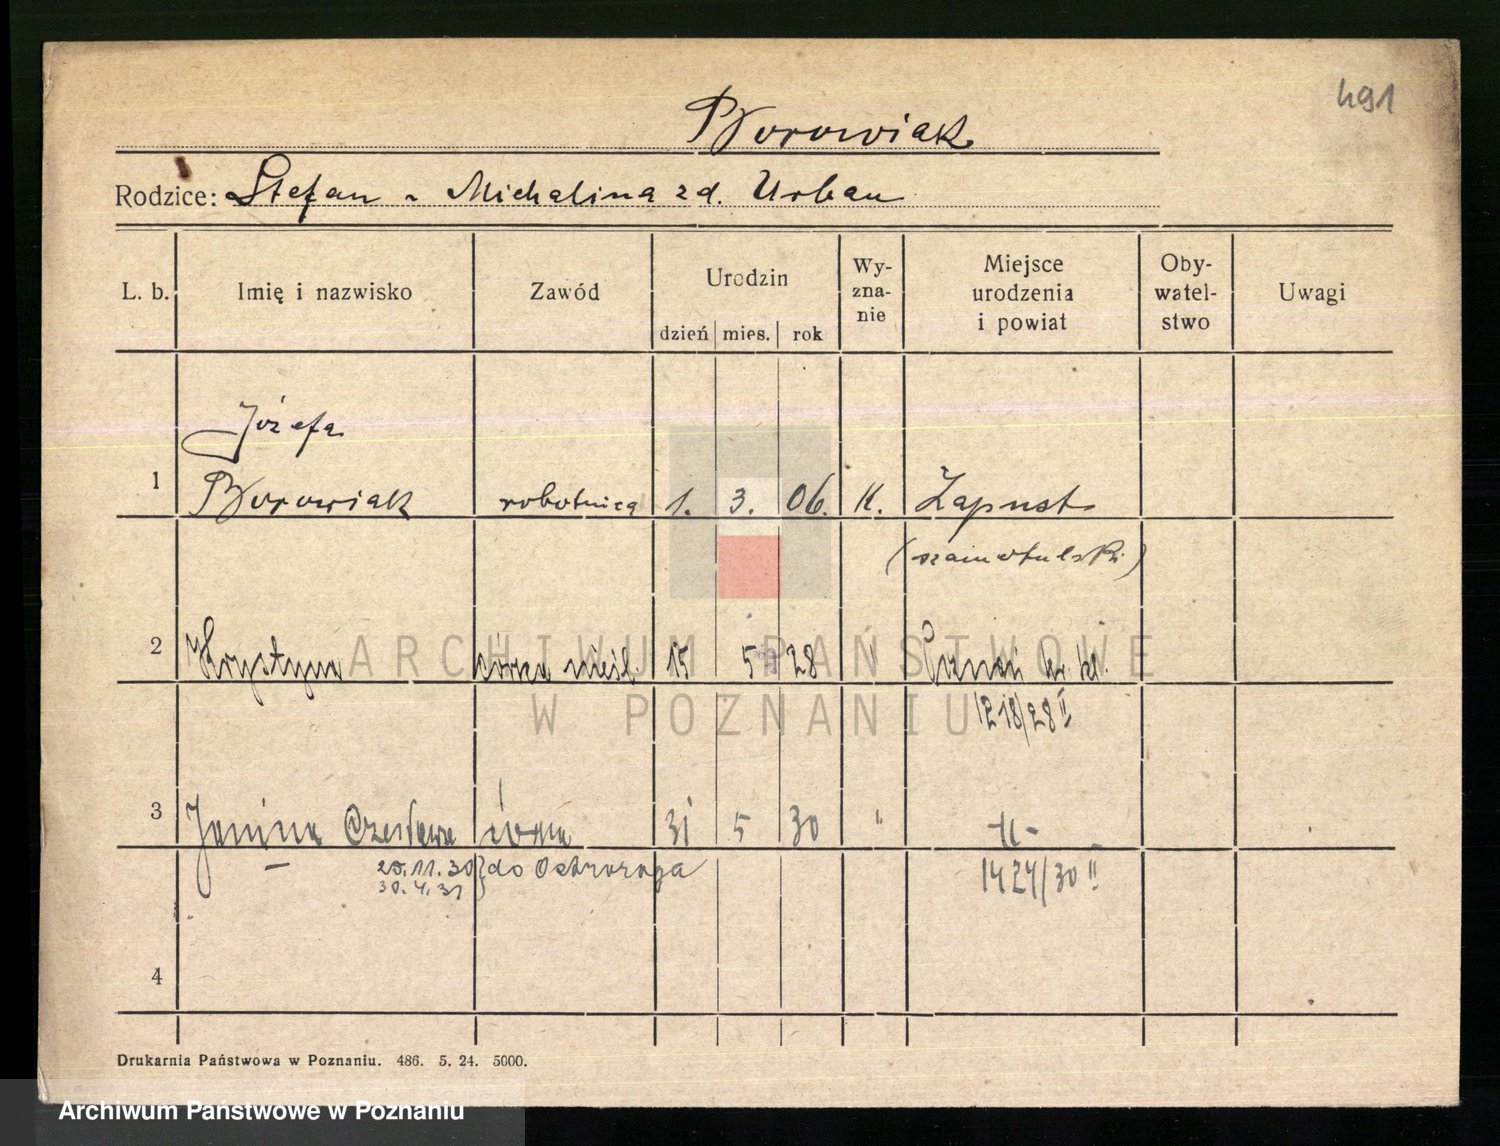 491
Borowiak
Rodzice: Stefan - Michalina zd. Urban
L. b.
Imię i nazwisko
Zawód
Urodzin
dzień mies. rok
Wy-
zna-
nie
Miejsce
urodzenia
i powiat
Oby-
watel-
stwo
Uwagi
Józefa
1 Borowiak robotnica 1. 3. 06. K. Zapust
(szamotulski)
2 Krystyna córka nieśl. 15 5 28 " Poznań
1218/28 II
3 Janina Czesława córka 31 5 30 " -11-
25.11.30 } do Ostroroga
30.4.31
1424/30 II
4
ARCHIWUM PAŃSTWOWE
W POZNANIU
Drukarnia Państwowa w Poznaniu. 486. 5. 24. 5000.
Archiwum Państwowe w Poznaniu